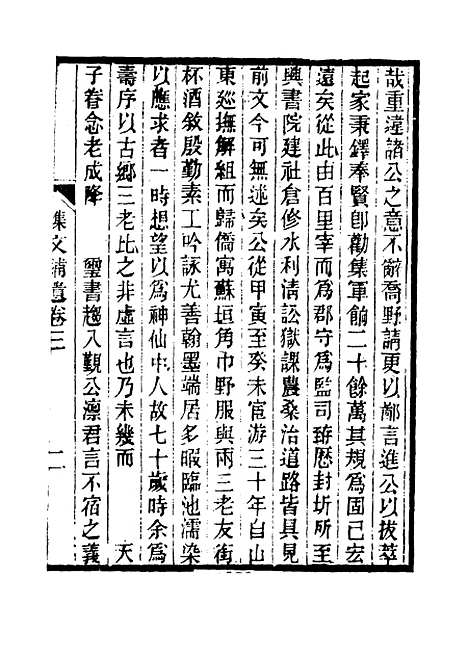 哉重違諸公之意不辭喬野請更以鄙言進公以拔萃
起家秉鐸奉賢卽勸集軍餉二十餘萬其規爲固已宏
遠矣從此由百里宰而爲郡守爲監司踄歷封圻所至
興書院建社倉修水利淸訟獄課農桑治道路皆具見
前文今可無述矣公從甲寅至癸未宦游三十年自山
東巡撫解組而歸僑寓蘇垣角巾野服與兩三老友銜
杯酒敘殷勤素工吟詠尤善翰墨端居多暇臨池濡染
以應求者一時想望以爲神仙中人故七十歲時余爲
壽序以古鄕三老比之非虛言也乃未幾而 天
子眷念老成降 璽書趨入觀公凛君言不宿之義
集文補遺卷三 二